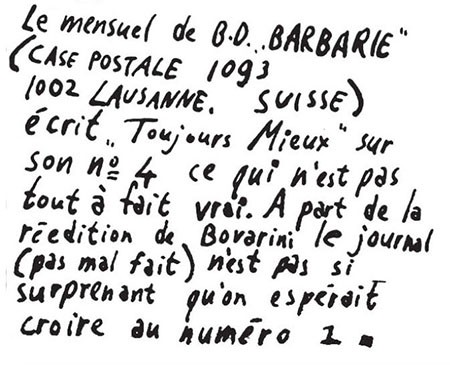 Le mensuel de B.D. „BARBARIE"
(CASE POSTALE 1093
1002 LAUSANNE. SUISSE)
écrit „Toujours Mieux" sur
son nº 4 ce qui n'est pas
tout à fait vrai. A part de la
réedition de Bovarini le journal
(pas mal fait) n'est pas si
surprenant qu'on espérait
croire au numéro 1.